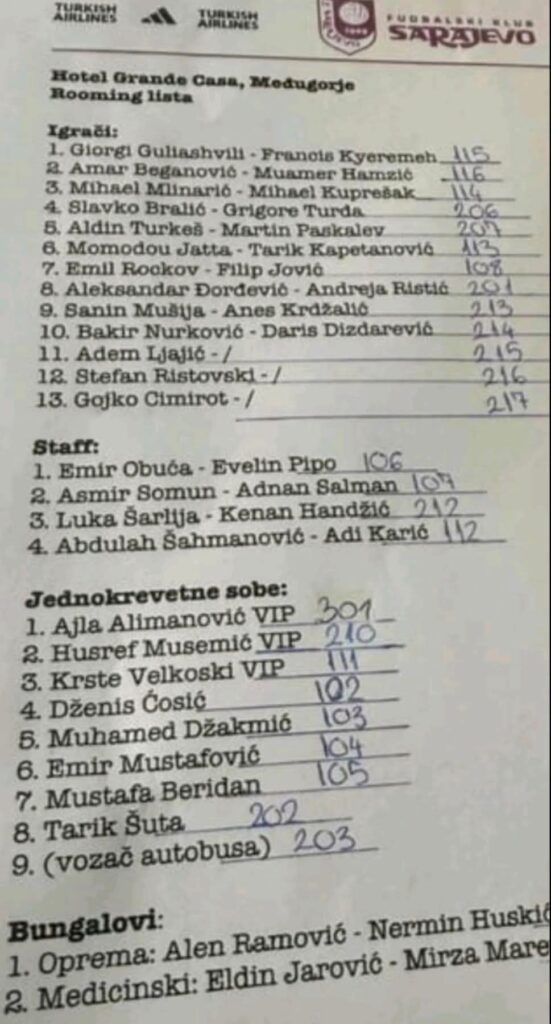 TURKISH AIRLINES
TURKISH AIRLINES
FUDBALSKI KLUB
SARAJEVO
Hotel Grande Casa, Međugorje
Rooming lista
Igrači:
1. Giorgi Guliashvili - Francis Kyeremeh 115
2. Amar Beganović - Muamer Hamzić 116
3. Mihael Mlinarić - Mihael Kuprešak 114
4. Slavko Bralić - Grigore Turda 206
5. Aldin Turkeš - Martin Paskalev 207
6. Momodou Jatta - Tarik Kapetanović 113
7. Emil Rockov - Filip Jović 108
8. Aleksandar Đorđević - Andreja Ristić 201
9. Sanin Mušija - Anes Krdžalić 213
10. Bakir Nurković - Daris Dizdarević 214
11. Adem Ljajić - / 215
12. Stefan Ristovski - / 216
13. Gojko Cimirot - / 217
Staff:
1. Emir Obuća - Evelin Pipo 106
2. Asmir Somun - Adnan Salman 107
3. Luka Šarlija - Kenan Handžić 212
4. Abdulah Šahmanović - Adi Karić 112
Jednokrevetne sobe:
1. Ajla Alimanović VIP 301
2. Husref Musemić VIP 210
3. Krste Velkoski VIP 111
4. Dženis Ćosić 102
5. Muhamed Džakmić 103
6. Emir Mustafović 104
7. Mustafa Beridan 105
8. Tarik Šuta 202
9. (vozač autobusa) 203
Bungalovi:
1. Oprema: Alen Ramović - Nermin Huskić
2. Medicinski: Eldin Jarović - Mirza Mare